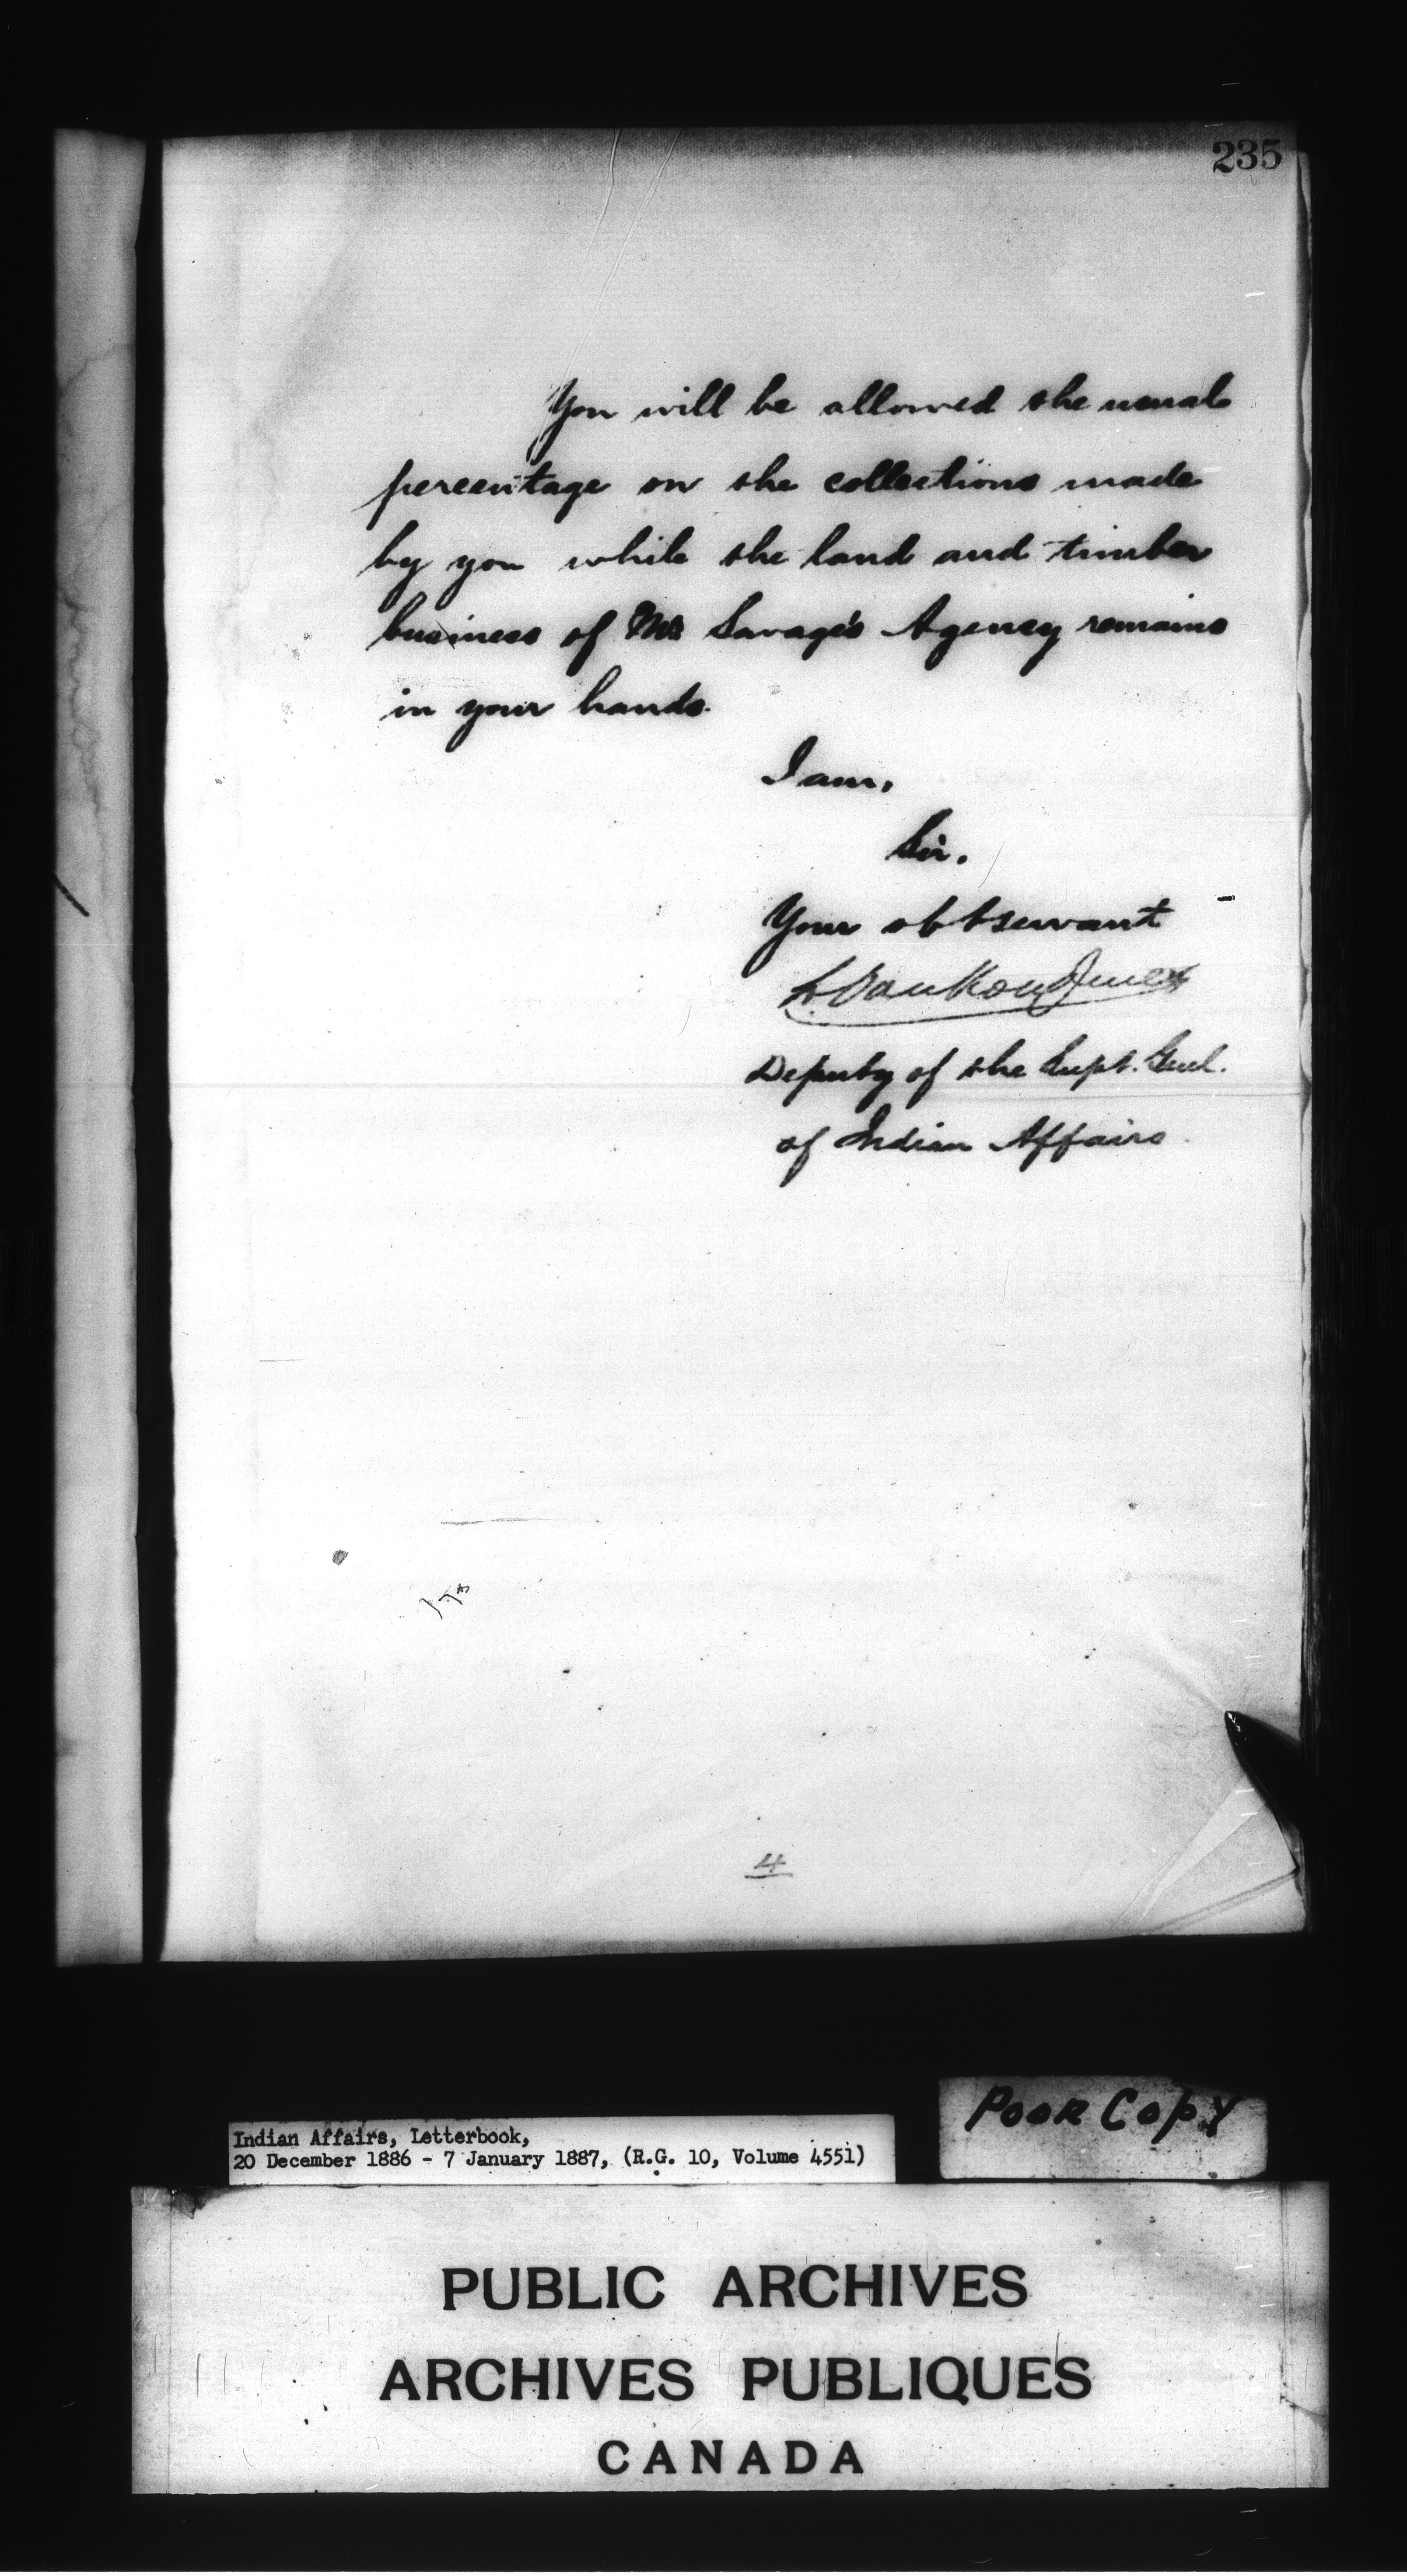 235
You will be allowed the usual
percentage on the collections made
by you while the land and timber
business of Mr Savage's Agency remains
in your hands.
I am,
Sir.
Your obt servant
L. Vankoughnet
Deputy of the Supt. Genl.
of Indian Affairs.
4
Poor Copy
Indian Affairs, Letterbook,
20 December 1886 - 7 January 1887, (R.G. 10, Volume 4551)
PUBLIC ARCHIVES
ARCHIVES PUBLIQUES
CANADA